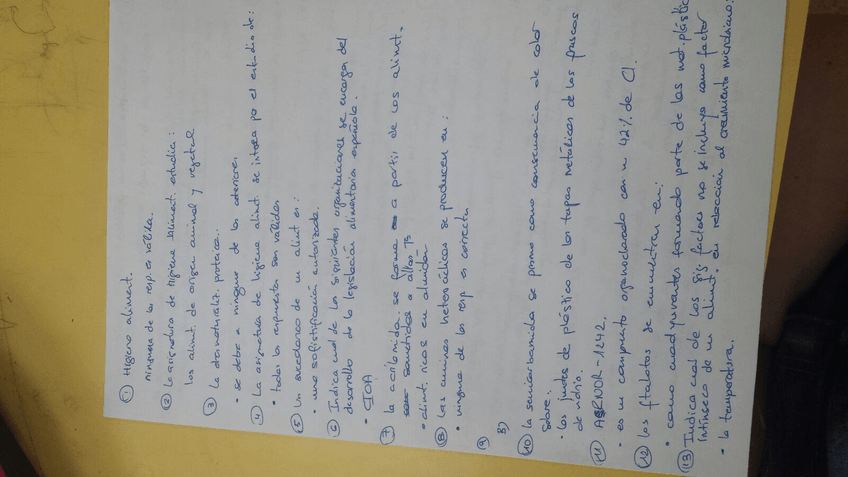 ① Higiene aliment.
ninguna de las resp. es válida.
② La asignatura de higiene aliment. estudia:
los alimt. de origen animal y vegetal
③ La desnaturaliz. proteica.
• se debe a ninguna de las anteriores
④ La asignatura de higiene alimt. se interesa por el estudio de:
• todas las respuestas son válidas
⑤ Un sucedáneo de un alimt es:
• una sofistificación autorizada.
⑥ Indica cual de las siguientes organizaciones se encarga del
desarrollo de la legislación alimentaria española.
• CIOA
⑦ La acrilamida se forma a partir de los alimt.
sometidos a altas Tª
• alimt. ricos en almidón
⑧ Las aminas heterocíclicas se producen en:
• ninguna de las resp es correcta
⑨
3)
⑩ La semicarbamida se forma como consecuencia de calor
sobre.
• las juntas de plástico de las tapas metálicas de los frascos
de vidrio.
⑪ -1242.
• es un compuesto organoclorado con un 42% de Cl.
⑫ Los ftalatos se encuentran en:
• como coadyuvantes formando parte de los mat. plástic
⑬ Indica cual de los sig factores no se incluye como factor
intínseco de un alimt. en relación al crecimiento microbiano:
• la temperatura.